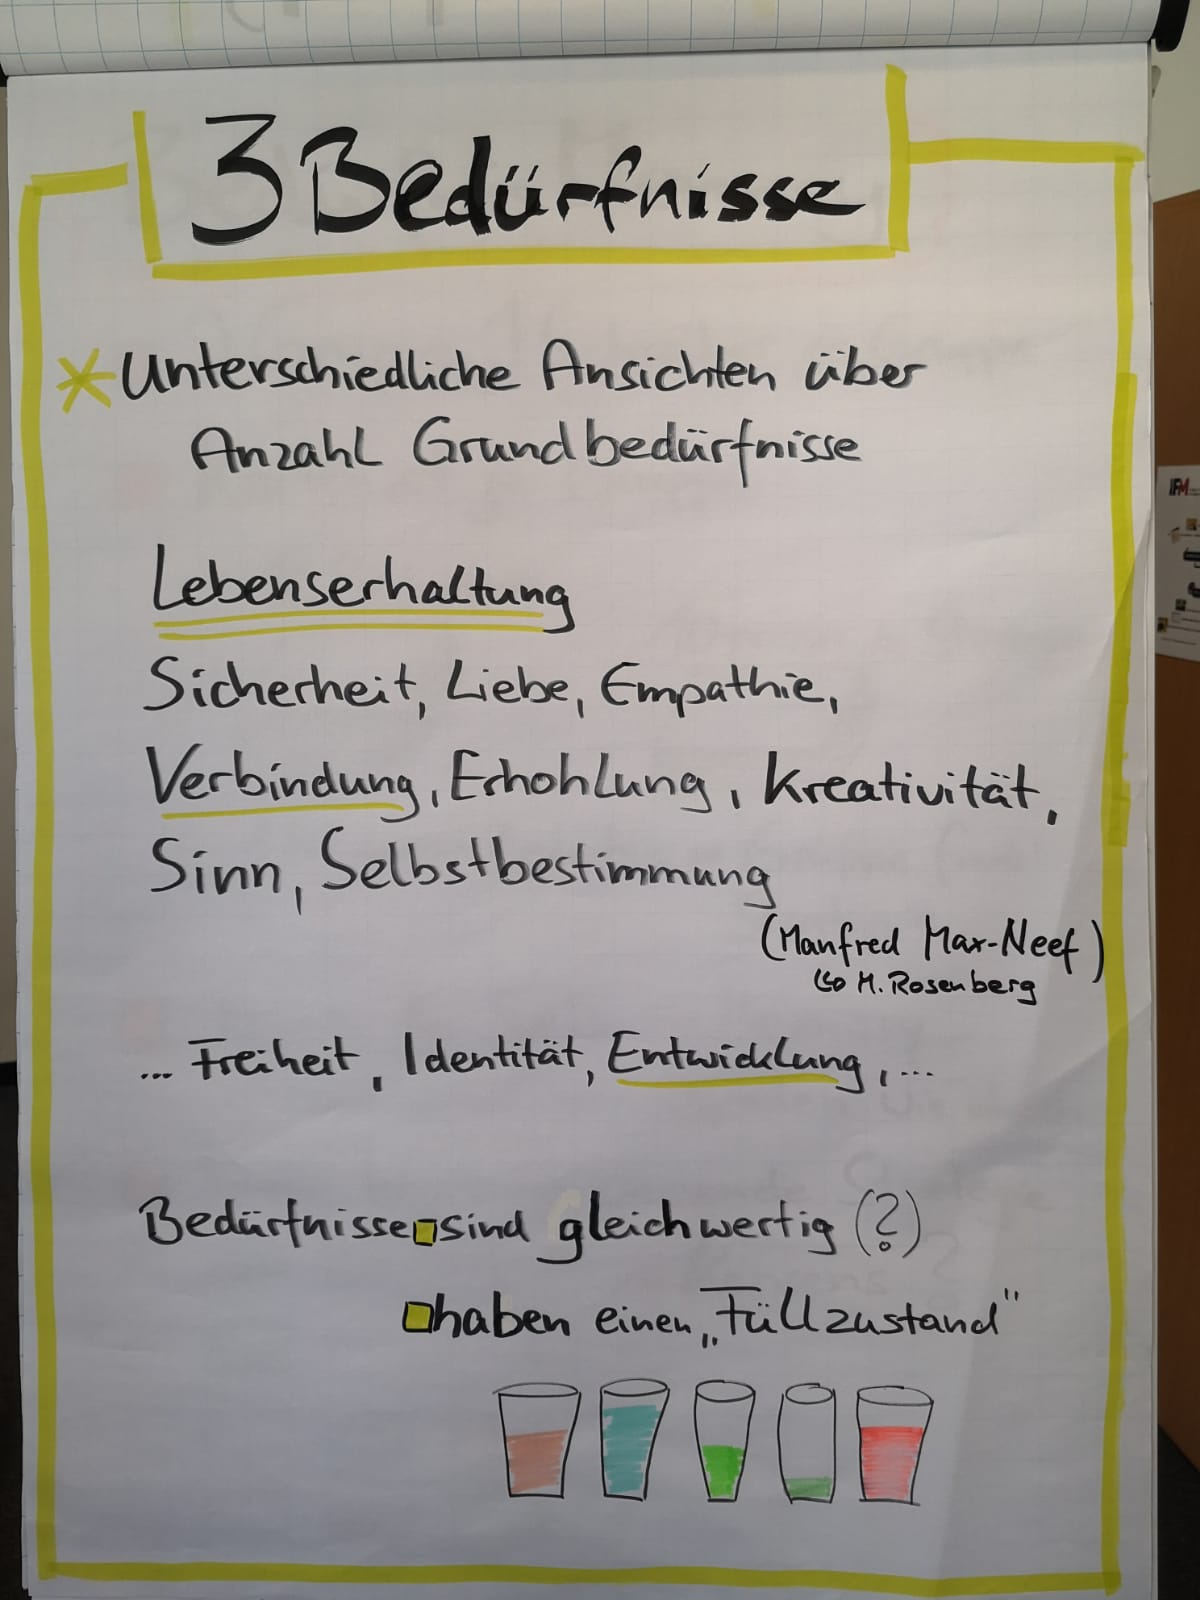 3 Bedürfnisse
Unterschiedliche Ansichten über
Anzahl Grundbedürfnisse
Lebenserhaltung
Sicherheit, Liebe, Empathie,
Verbindung, Erhohlung, Kreativität,
Sinn, Selbstbestimmung
(Manfred Max-Neef)
so M. Rosenberg
... Freiheit, Identität, Entwicklung, ...
Bedürfnisse sind gleichwertig (?)
haben einen „Füllzustand"
IFM